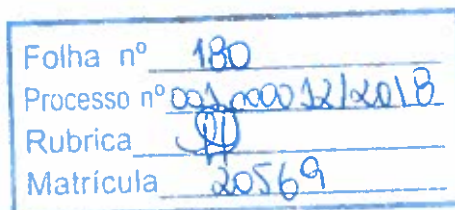 Folha nº 180
Processo nº 001.000012/2018
Rubrica
Matrícula 20569